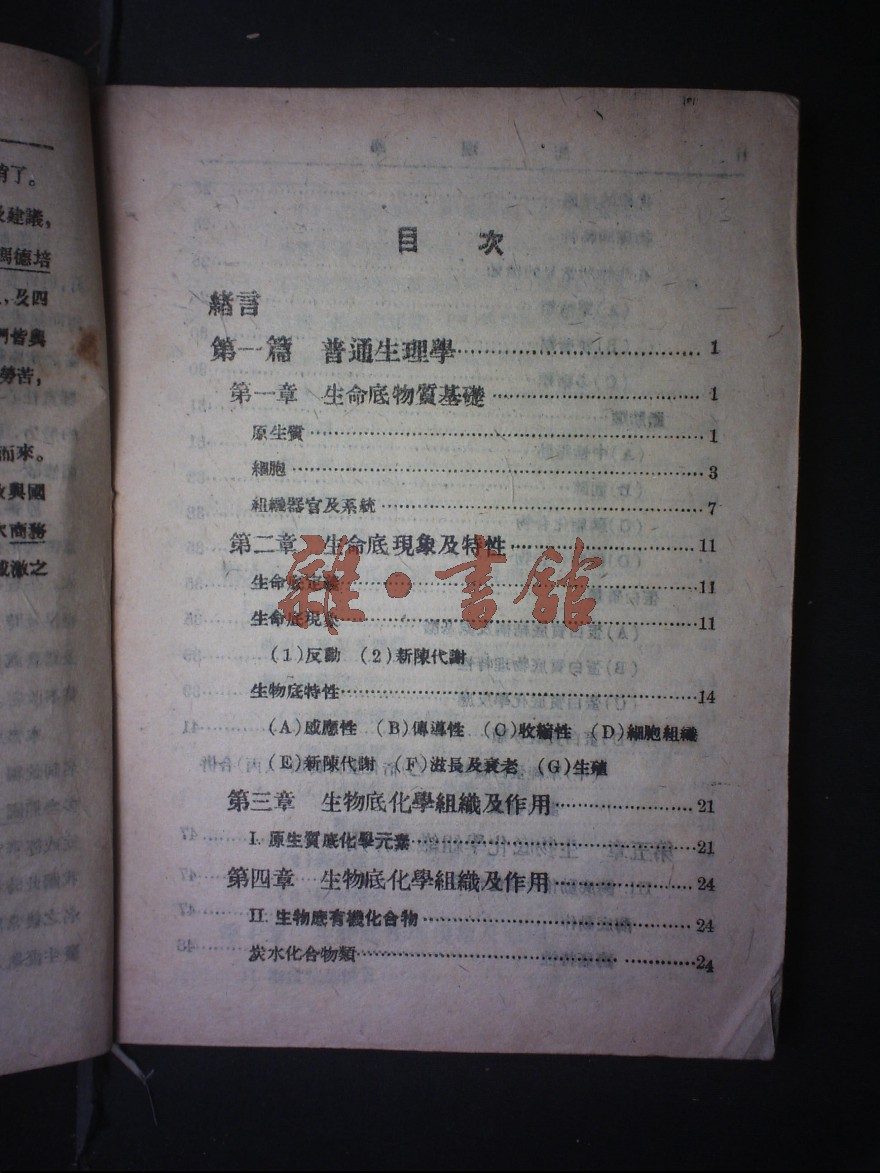 有了。
建議,
馮德培
及四
們皆與
勞苦,
而來。
與國
商務
感激之
目次
緒言
第一篇 普通生理學 1
第一章 生命底物質基礎 1
原生質 1
細胞 3
組織器官及系統 7
第二章 生命底現象及特性 11
生命底定義 11
生命底現象 11
(1)反動 (2)新陳代謝
生物底特性 14
(A)感應性 (B)傳導性 (C)收縮性 (D)細胞組織
(E)新陳代謝 (F)滋長及衰老 (G)生殖
第三章 生物底化學組織及作用 21
I. 原生質底化學元素 21
第四章 生物底化學組織及作用 24
II. 生物底有機化合物 24
炭水化合物類 24
雜·書館